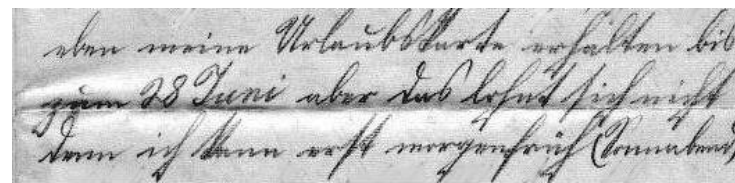 eben meine Urlaubskarte erhalten bis
zum 28 Juni aber das lohnt sich nicht
denn ich kann erst morgenfrüh (Sonnabend)